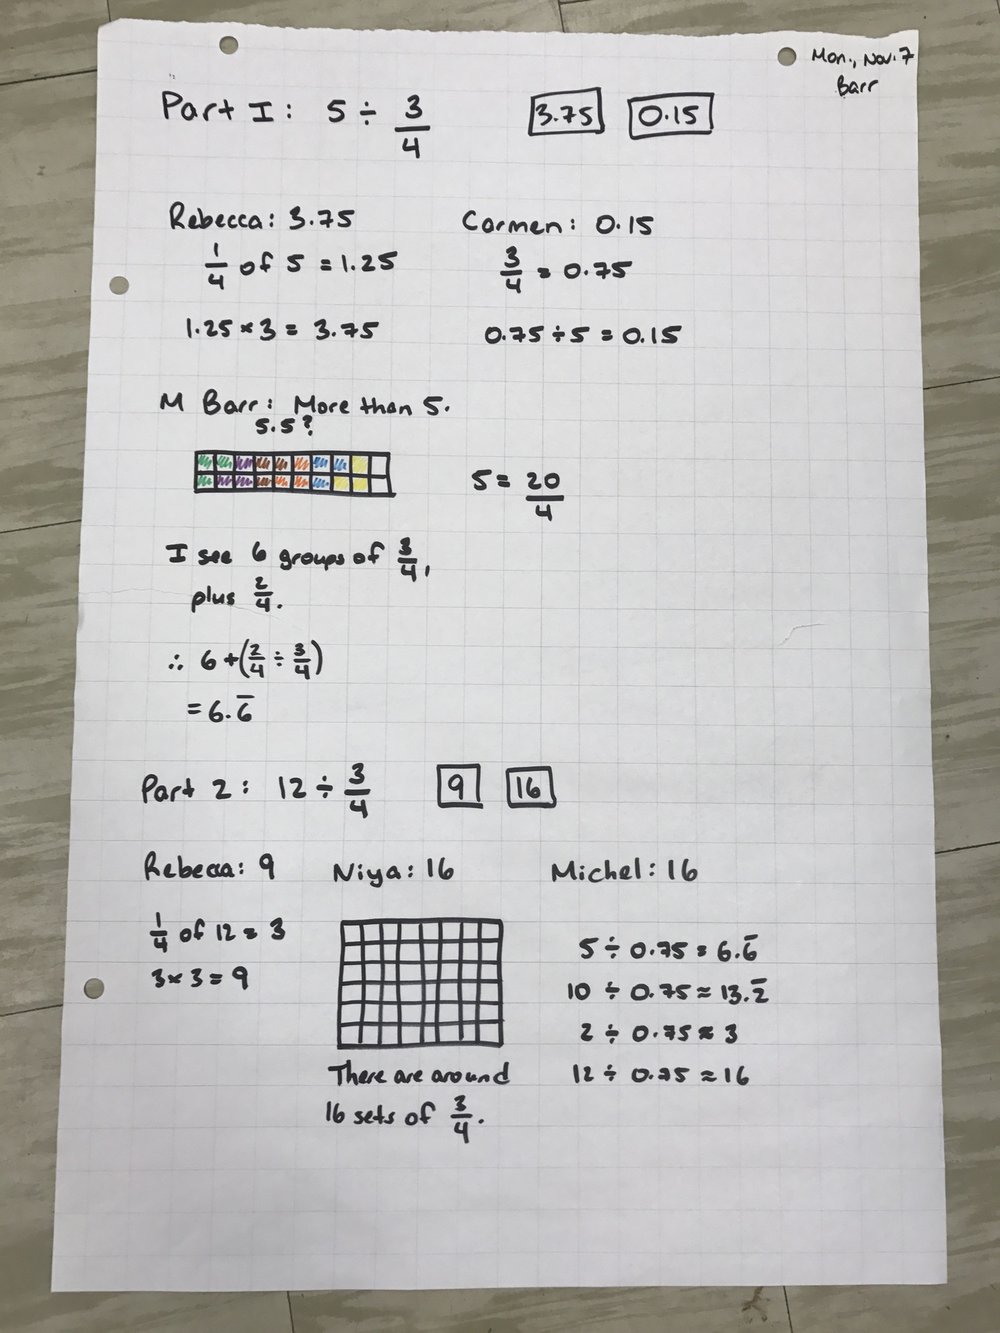 Mon., Nov. 7
Barr
Part I: 5 ÷ 3/4 3.75 0.15
Rebecca: 3.75
1/4 of 5 = 1.25
1.25 × 3 = 3.75
Carmen: 0.15
3/4 = 0.75
0.75 ÷ 5 = 0.15
M Barr: More than 5.
5.5?
5 = 20/4
I see 6 groups of 3/4,
plus 2/4.
∴ 6 + (2/4 ÷ 3/4)
= 6.6̅
Part 2: 12 ÷ 3/4 9 16
Rebecca: 9
1/4 of 12 = 3
3 × 3 = 9
Niya: 16
There are around
16 sets of 3/4.
Michel: 16
5 ÷ 0.75 = 6.6̅
10 ÷ 0.75 ≈ 13.2̅
2 ÷ 0.75 ≈ 3
12 ÷ 0.75 ≈ 16